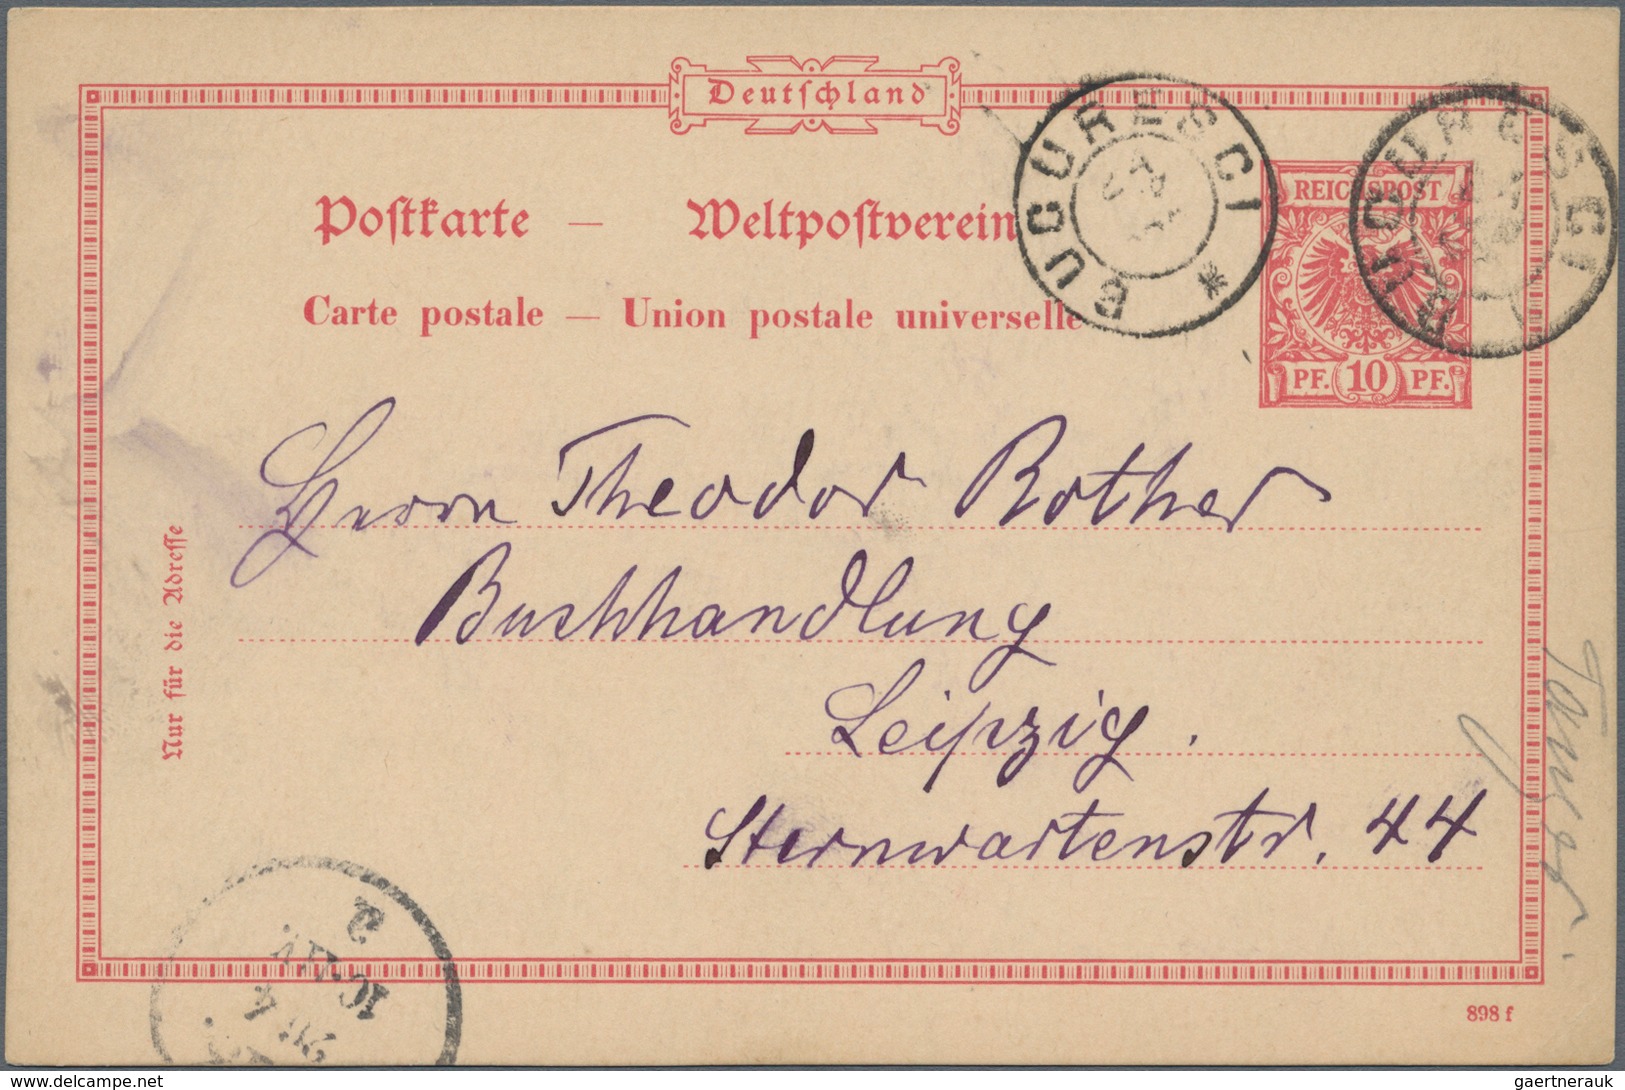 Deutschland
Postkarte — Weltpostverein
Carte postale — Union postale universelle
BUCURESCI *
BUCURESCI
REICHSPOST
PF. 10 PF.
Herrn Theodor Rother
Buchhandlung
Leipzig.
Sternwartenstr. 44
Nur für die Adresse
898 f
gaertnerauk